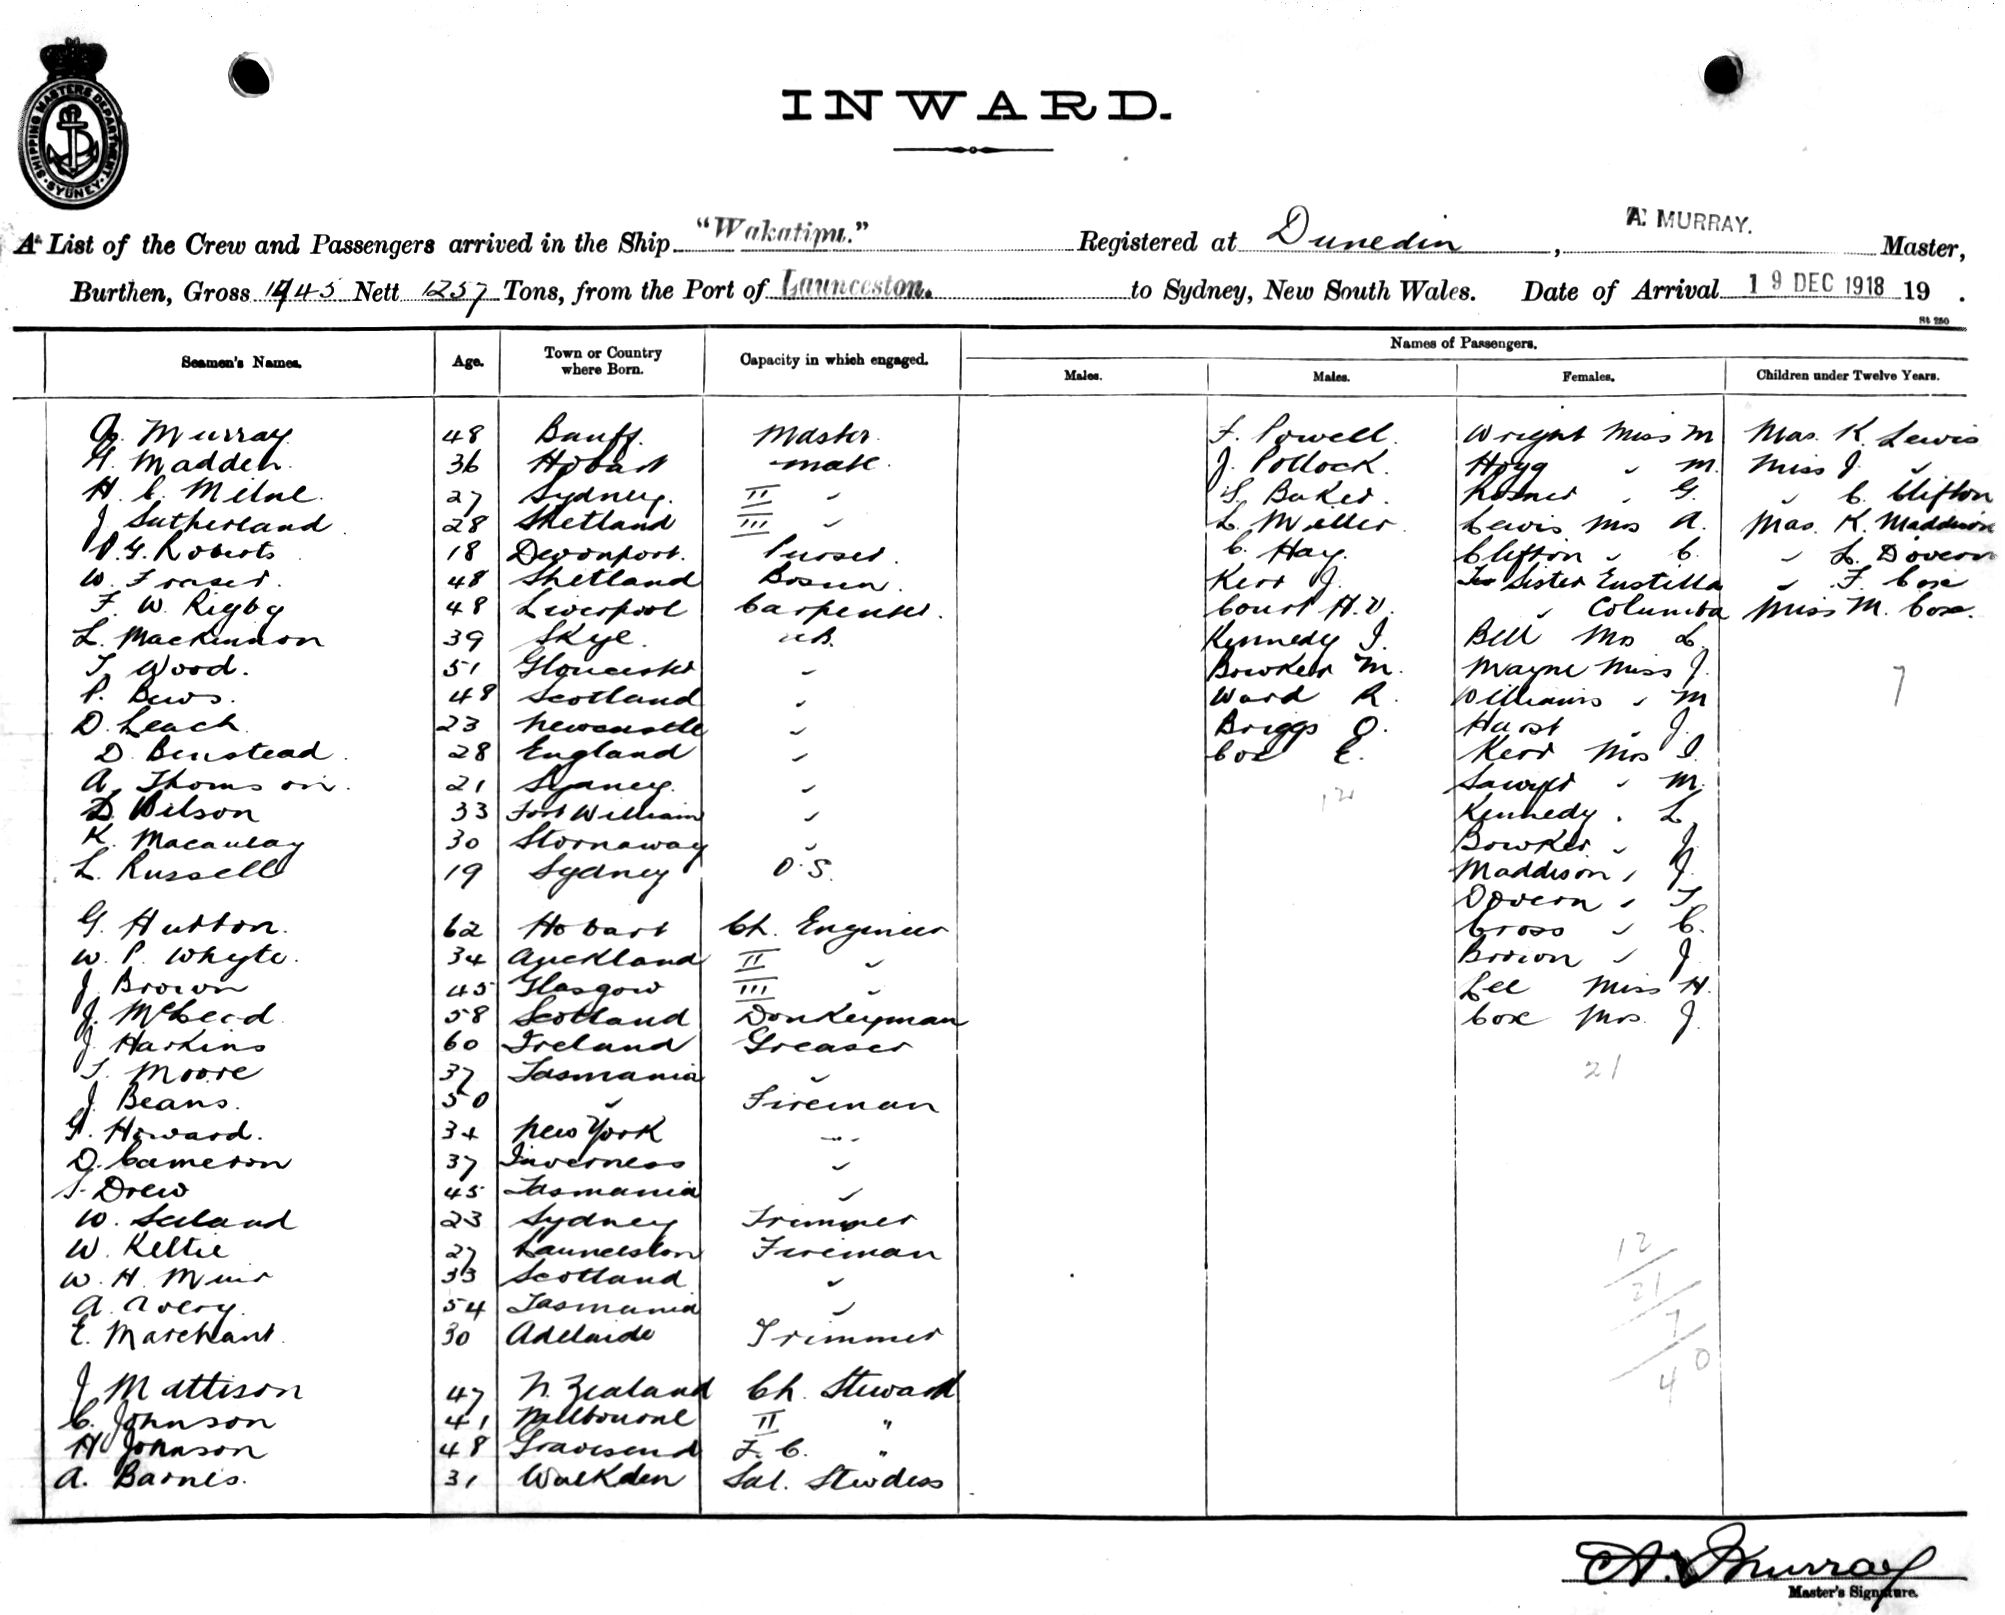 SHIPPING MASTERS DEPARTMENT · SYDNEY ·
INWARD.
A List of the Crew and Passengers arrived in the Ship "Wakatipu." Registered at Dunedin, A. MURRAY. Master,
Burthen, Gross 1945 Nett 1257 Tons, from the Port of Launceston. to Sydney, New South Wales. Date of Arrival 19 DEC 1918 19 .
St 250
Seamen's Names. Age. Town or Country where Born. Capacity in which engaged. Names of Passengers.
Males. Males. Females. Children under Twelve Years.
A. Murray 48 Banff. Master F. Powell. Wright Miss M Mas. K. Lewis
H. Madden. 36 Hobart mate. J. Pollock. Hogg " M. Miss J. "
H. C. Milne. 27 Sydney. II " S. Baker. " G. " C. Clifton
J Sutherland 28 Shetland III " L. Miller. Lewis Mrs A. Mas. K. Maddison
P. G. Roberts 18 Devonport. Purser. C. Hay. Clifton " C. " L. Dovern
W. Fraser. 48 Shetland Bosun. Kerr J. Sister Eustilla " F. Cox
F. W. Rigby 48 Liverpool Carpenter. Court H.V. " Columba Miss M. Cox.
L. Mackinnon 39 Skye. A.B. Kennedy J. Bell Mrs L.
T. Wood. 51 Gloucester " Bowker M. Mayne Miss J. 7
P. Bews. 48 Scotland " Ward R. Williams " M
D. Leach 23 Newcastle " Briggs O. Hurst " J.
D. Binstead 28 England " Cox E. Kerr Mrs I.
A. Thomson. 21 Sydney. " 12 Sawyer " M.
D. Wilson 33 Fort William " Kennedy " L
K. Macaulay 30 Stornaway " Bowker " J.
L. Russell 19 Sydney O.S. Maddison " J.
Dovern " T
G. Hutton. 62 Hobart Ch. Engineer Cross " C.
W. P. Whyte. 34 Auckland II " Brown " J.
J Brown 45 Glasgow III " Lee Miss H.
J. McLeod 58 Scotland Donkeyman Cox Mrs. J.
J. Harkins 60 Ireland Greaser
T. Moore 37 Tasmania " 21
J. Beans. 50 " Fireman
G. Howard. 34 New York "
D. Cameron 37 Inverness "
Drew 45 Tasmania "
W. Seeland 23 Sydney Trimmer
W. Keltie 27 Launceston Fireman 12
W. H. Muir 33 Scotland " 21
A. Avery. 54 Tasmania " 7
E. Marchant. 30 Adelaide Trimmer
J Mattison 47 N. Zealand Ch. Steward 40
C. Johnson 41 Melbourne II "
H Johnson 48 Gravesend F. C. "
A. Barnes. 31 Walkden Sal. Stewdess
A. Murray
Master's Signature.